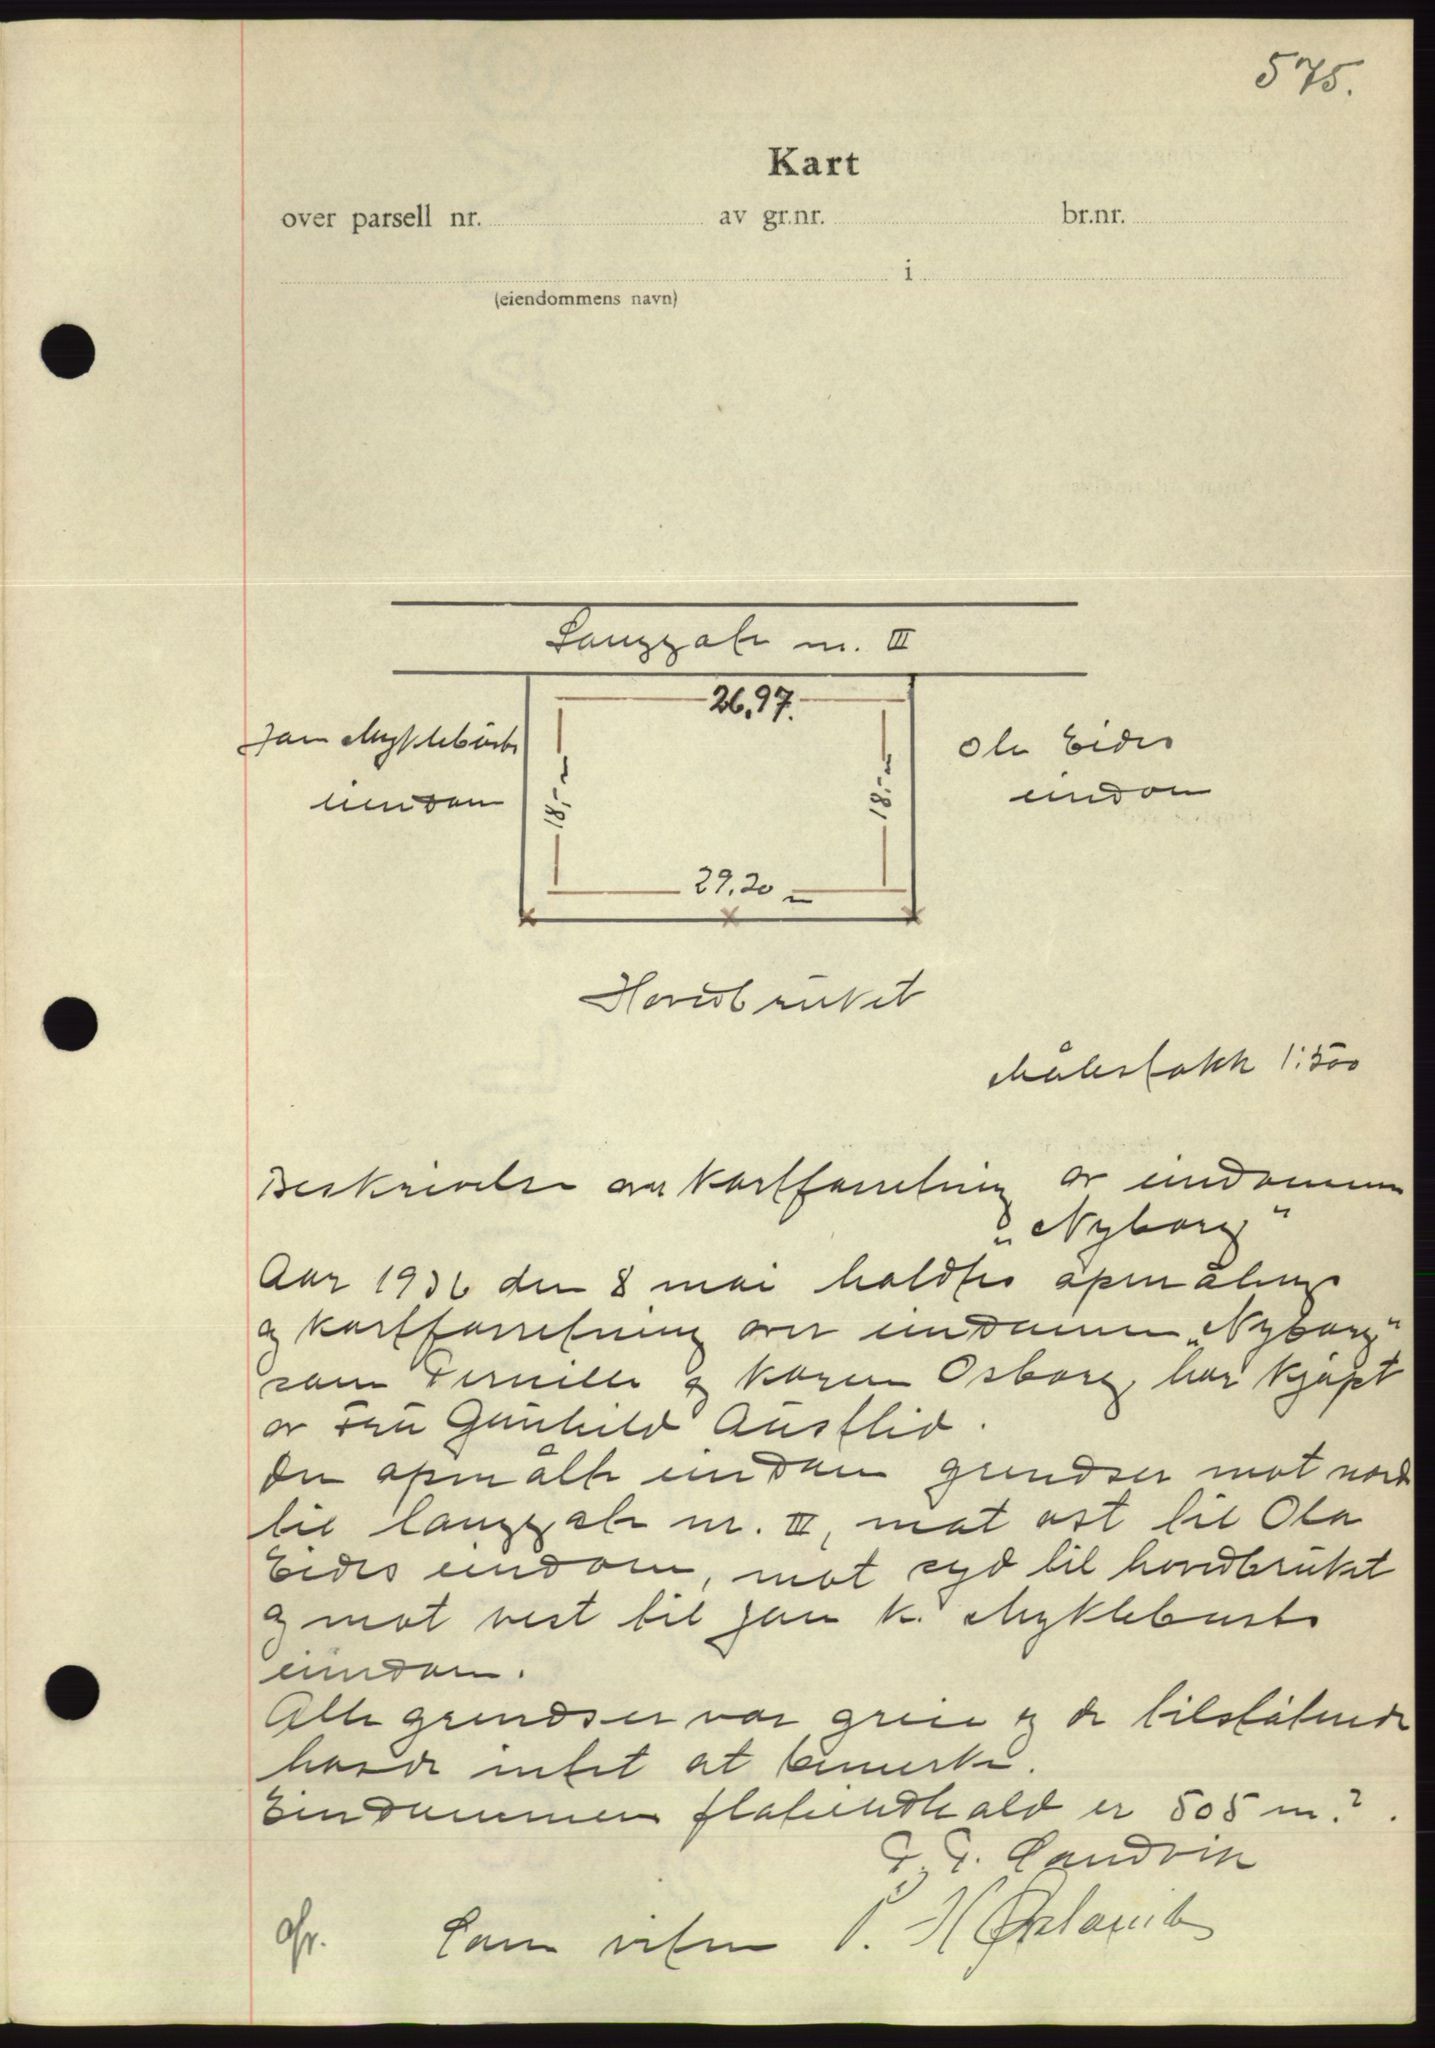 575.
Kart
over parsell nr. av gr.nr. br.nr.
i
(eiendommens navn)
Langgate nr. III
26,97.
Jan Myklebusts
eiendom
18,- m
18,- m
Ole Eides
eiendom
29,20 m
Hovedbruket
Målestokk 1:500
Beskrivelse over kartforretning av eiendommen
"Nyborg"
Aar 1936 den 8 mai holdtes opmålings
og kartforretning over eiendommen "Nyborg"
som Pernille og Karen Osborg, har kjøpt
av Fru Gunhild Austlid.
Den opmålte eiendom grendser mot nord
til langgate nr. III, mot øst til Ola
Eides eiendom, mot syd til hovedbruket
og mot vest til Jan K. Myklebusts
eiendom.
Alle grendser var greie og de tilstøtende
havde intet at bemerke.
Eiendommen flateindhald er 505 m².
P. P. Sandvik
Som vitne P. H.